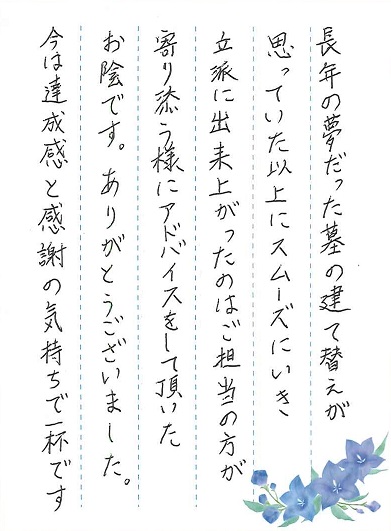 長年の夢だった墓の建て替えが
思っていた以上にスムーズにいき
立派に出来上がったのはご担当の方が
寄り添う様にアドバイスをして頂いた
お陰です。ありがとうございました。
今は達成感と感謝の気持ちで一杯です